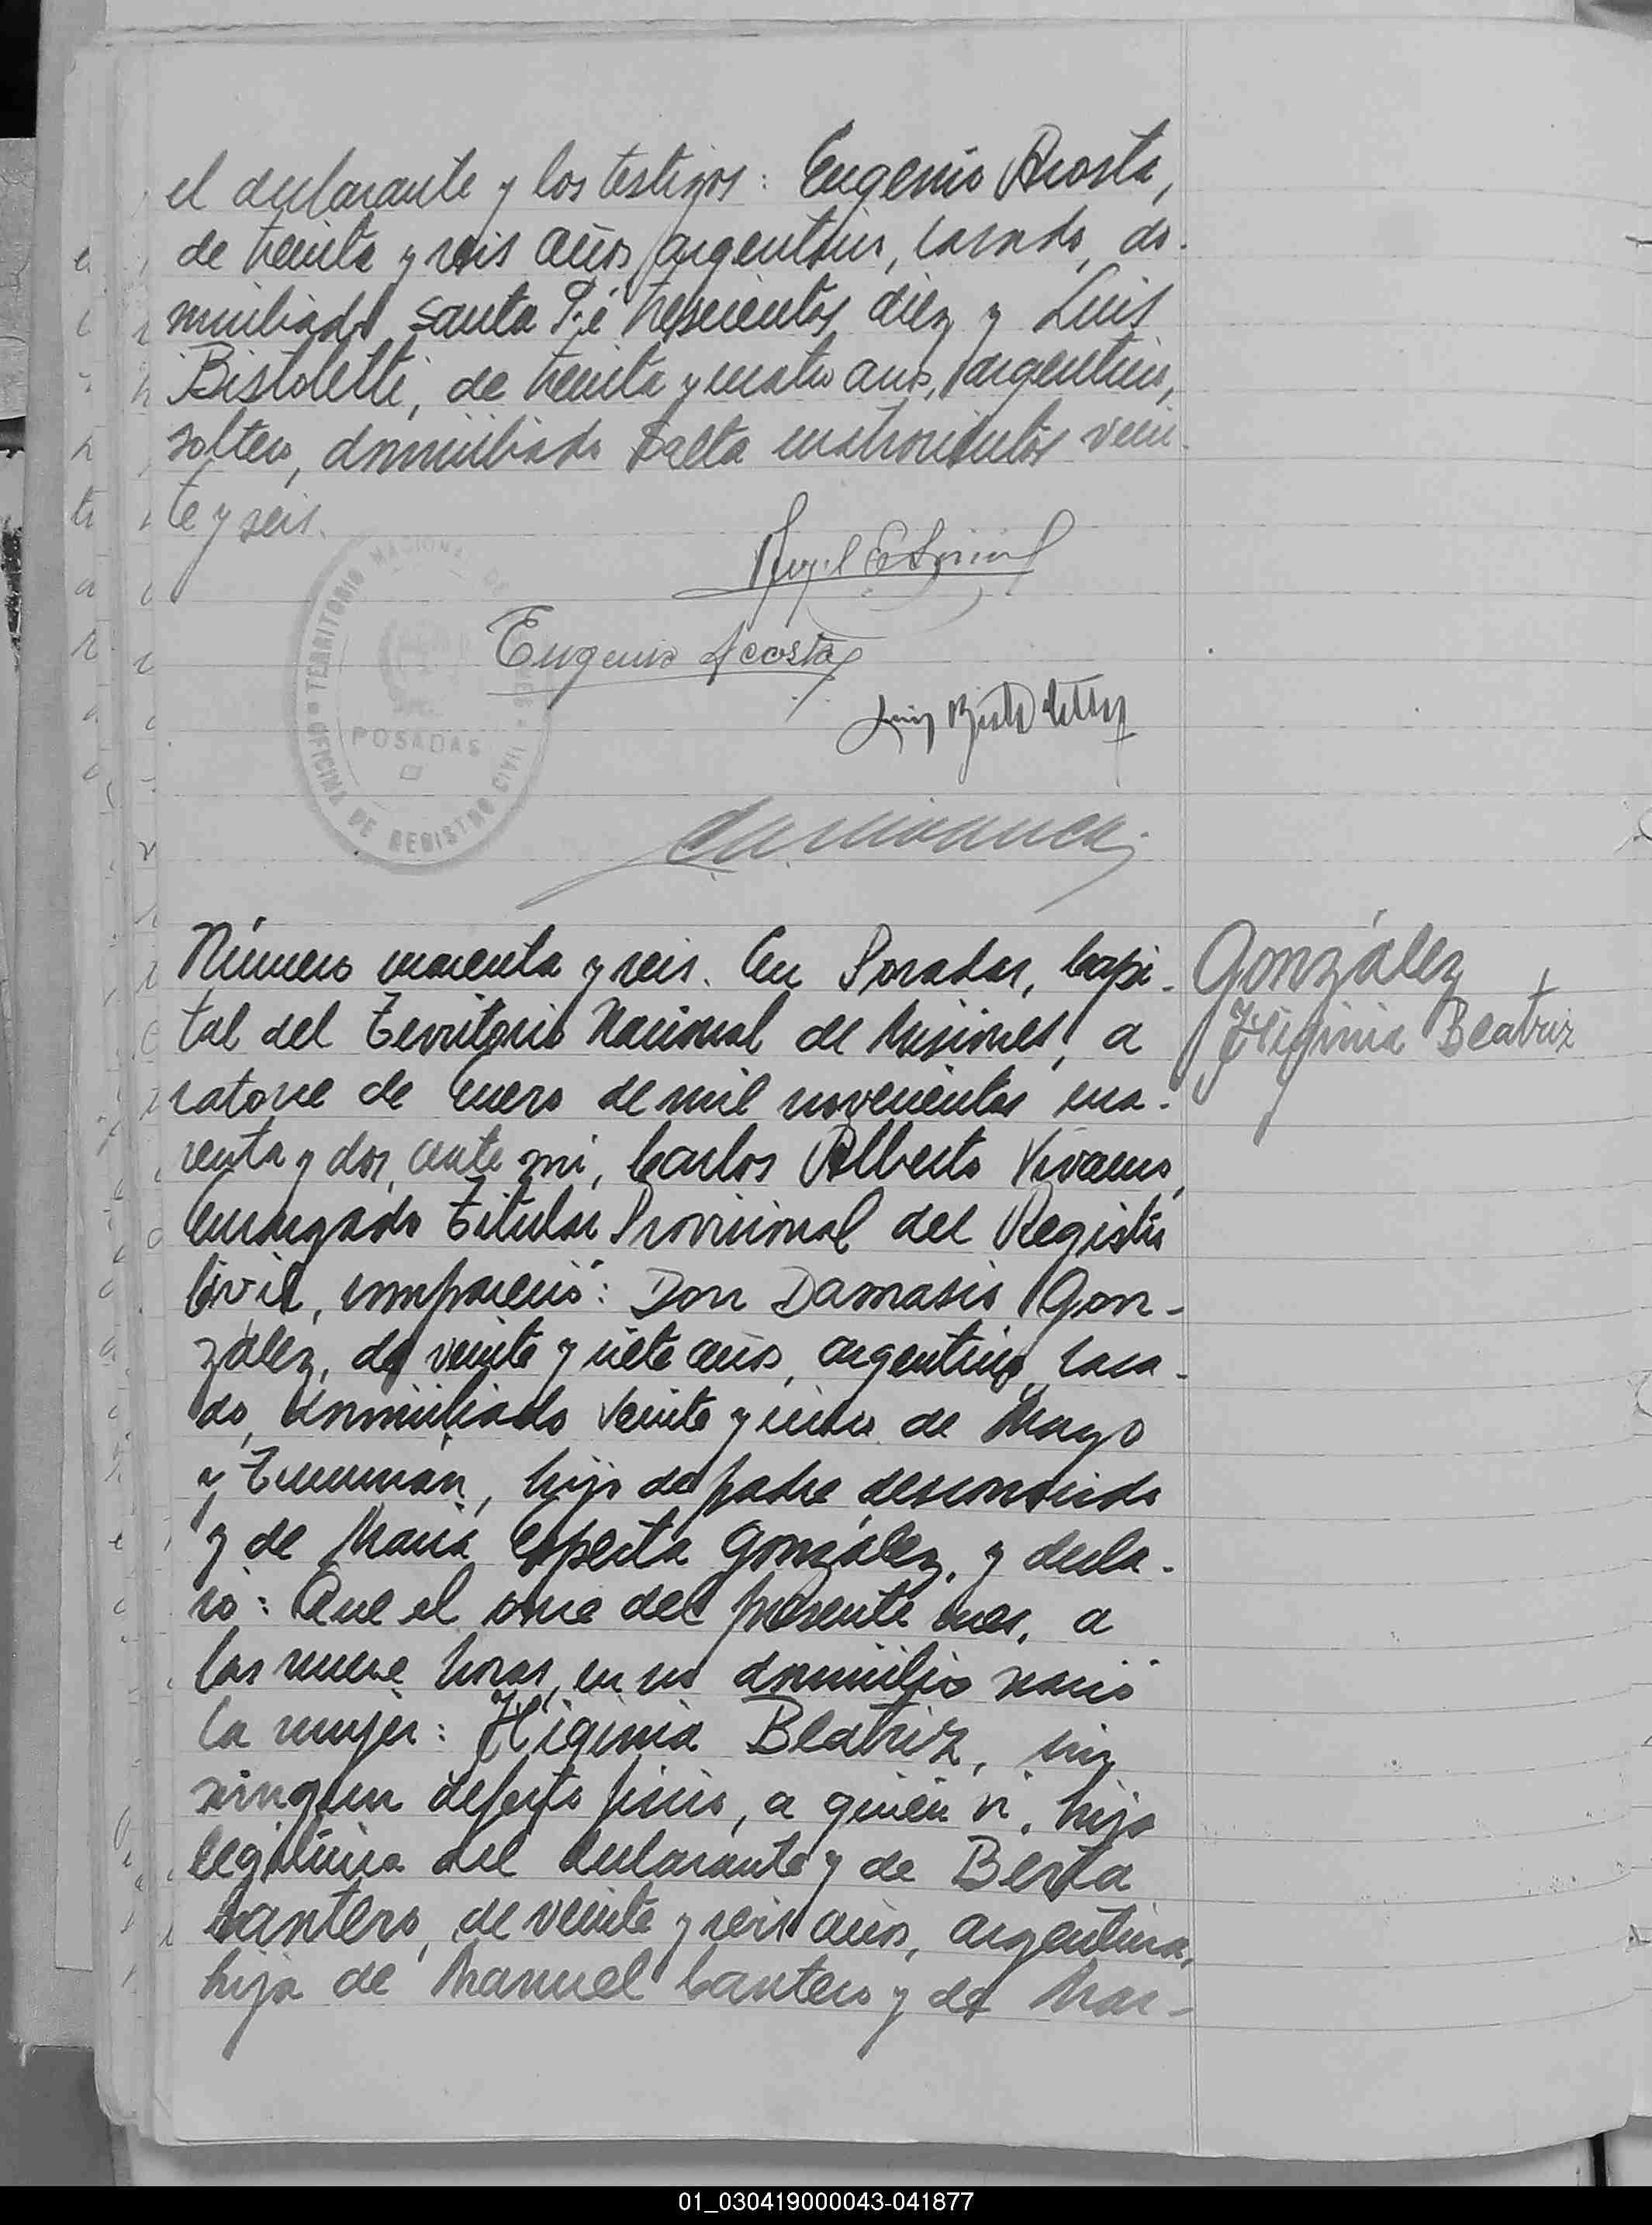 el declarante y los testigos: Eugenio Acosta,
de treinta y seis años, argentino, casado, do-
miciliado Santa Fé trescientos diez y Luis
Bistoletti, de treinta y cuatro años, argentino,
soltero, domiciliado Salta cuatrocientos vein-
te y seis.
TERRITORIO NACIONAL DE MISIONES
OFICINA DE REGISTRO CIVIL
POSADAS
Eugenio Acosta
Luis Bistoletti
Número cuarenta y seis. En Posadas, Capi-
tal del Territorio Nacional de Misiones, a
catorce de Enero de mil novecientos cua-
renta y dos, ante mi, Carlos Alberto Vivanco,
Encargado Titular Provisional del Registro
Civil, compareció: Don Damasio Gon-
zález, de veinte y siete años, argentino, casa-
do, domiciliado Veinte y cinco de Mayo
y Tucumán, hijo de padre desconocido
y de María Experta González, y decla-
ró: Que el once del presente mes, a
las nueve horas, en su domicilio nació
la mujer: Higinia Beatriz, sin
ningun defecto físico, a quien vi, hija
legítima del declarante y de Berta
Cantero, de veinte y seis años, argentina,
hija de Manuel Cantero y de Mar-
González
Higinia Beatriz
01_030419000043-041877